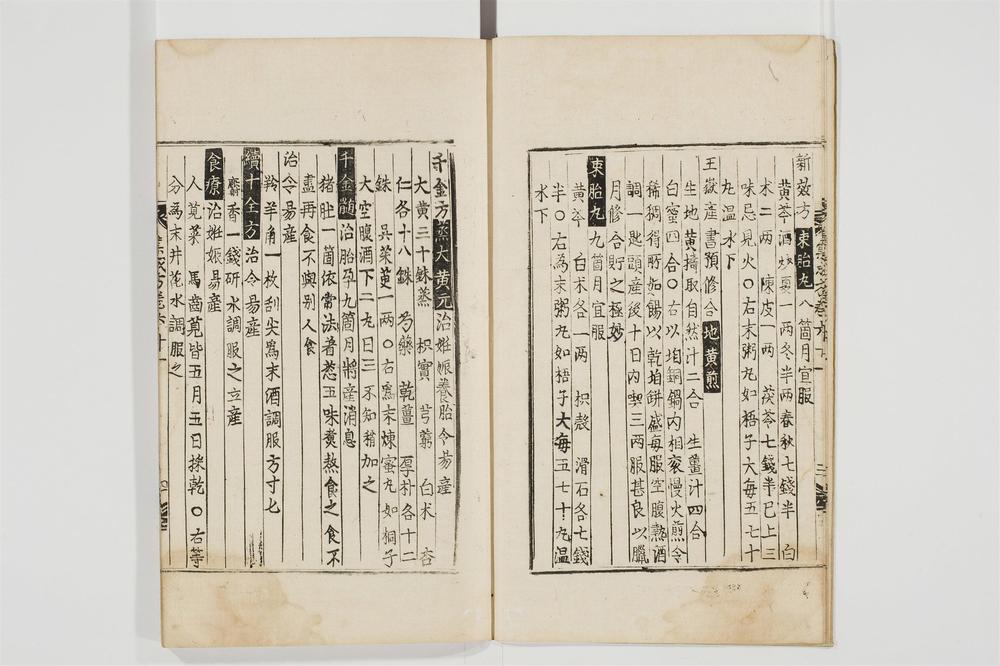 新效方束胎丸八箇月宜服
黃芩酒炒夏一兩冬半兩春秋七錢半 白
朮二兩 陳皮一兩 茯苓七錢半已上三
味忌見火○右末粥丸如梧子大每五七十
丸溫水下
王嶽產書預修合地黃煎
生地黃擣取自然汁二合 生薑汁四合
白蜜四合○右以垍銅鍋內相衮慢火煎令
稀稠得所如餳以乾垍缾盛每服空腹熱酒
調一匙頭產後十日內喫三兩服甚良以臘
月修合貯之極妙
束胎丸九箇月宜服
黃芩 白朮各一兩 枳殼 滑石各七錢
半○右為末粥丸如梧子大每五七十丸溫
水下
千金方蒸大黃元治姙娠養胎令易產
大黃三十銖蒸 枳實 芎藭 白朮 杏
仁各十八銖 芍藥 乾薑 厚朴各十二
銖 吳茱萸一兩○右為末煉蜜丸如桐子
大空腹酒下二丸日三 不知稍加之
千金髓治胎孕九箇月將產消息
猪肚一箇依常法著葱五味煑熟食之食不
盡再食不與別人食
治令易產
羚羊角一枚刮尖爲末酒調服方寸匕
續十全方治令易產
麝香一錢研水調服之立產
食療治姙娠易產
人莧菜 馬齒莧皆五月五日採乾○右等
分為末井花水調服之